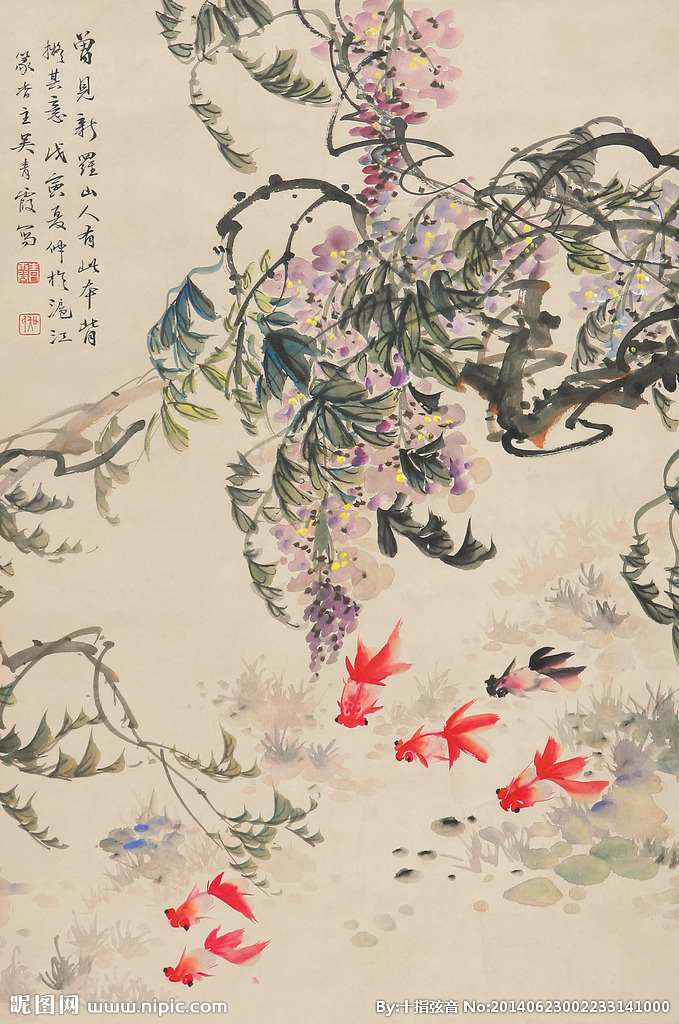 曽見新羅山人有此本背
擬其意戊寅夏仲於滬江
篆香主吴青霞写
青霞
昵图网 www.nipic.com
By:十指弦音 No:20140623002233141000